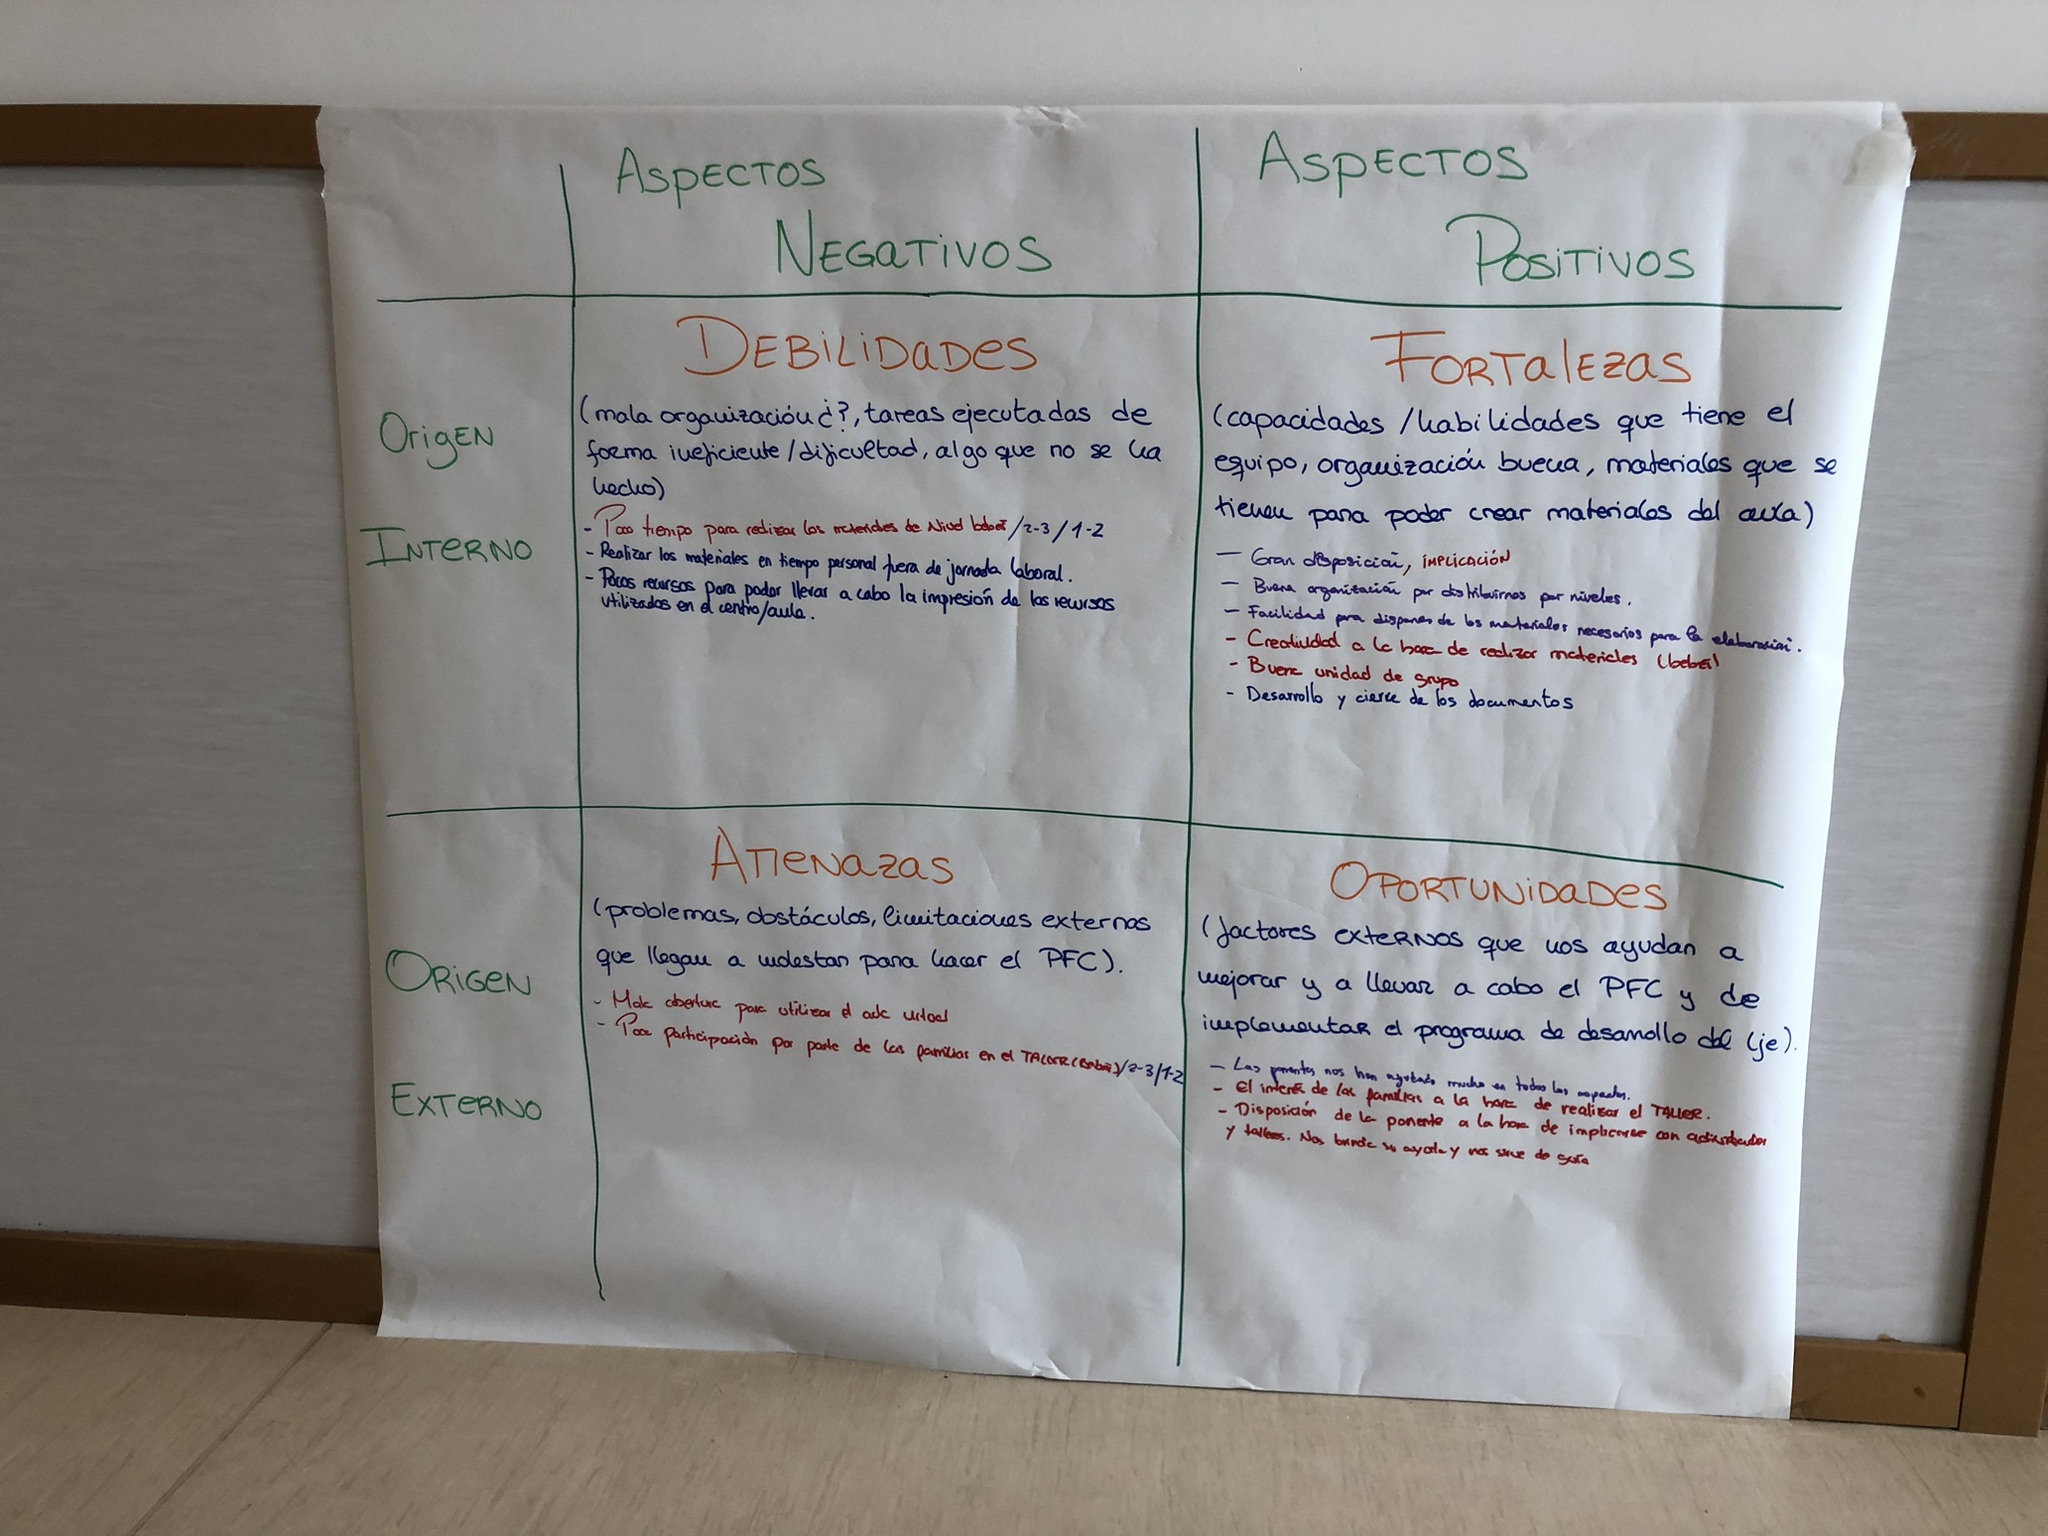 ASPECTOS
NEGATIVOS
ASPECTOS
POSITIVOS
ORIGEN
INTERNO
DEBILIDADES
(mala organización ¿?, tareas ejecutadas de
forma ineficiente/dificultad, algo que no se ha
hecho)
- Poco tiempo para realizar los materiales de Nivel bebés/2-3/1-2
- Realizar los materiales en tiempo personal fuera de jornada laboral.
- Pocos recursos para poder llevar a cabo la impresión de los recursos
utilizados en el centro/aula.
FORTALEZAS
(capacidades/habilidades que tiene el
equipo, organización buena, materiales que se
tienen para poder crear materiales del aula)
- Gran disposición, IMPLICACIÓN
- Buena organización por distribuirnos por niveles.
- Facilidad para disponer de los materiales necesarios para la elaboración.
- Creatividad a la hora de realizar materiales (bebés)
- Buena unidad de grupo
- Desarrollo y cierre de los documentos
ORIGEN
EXTERNO
AMENAZAS
(problemas, obstáculos, limitaciones externas
que llegan a molestar para hacer el PFC).
- Mala obertura para utilizar el aula virtual
- Poca participación por parte de las familias en el TALLER (Bebés)/2-3/1-2
OPORTUNIDADES
(factores EXTERNOS que nos ayudan a
mejorar y a llevar a cabo el PFC y de
implementar el programa de desarrollo del (je).
- Las ponentes nos han ayudado mucho en todos los aspectos.
- El interés de las familias a la hora de realizar el TALLER.
- Disposición de la ponente a la hora de implicarse con
y talleres. Nos brinda su ayuda y nos sirve de guía